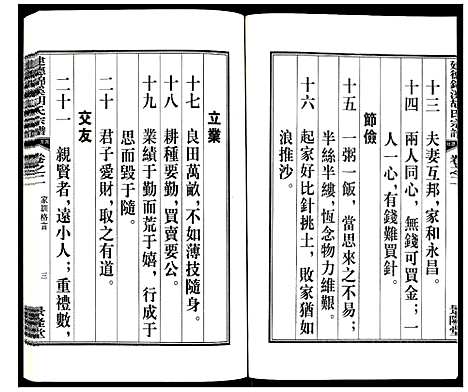 建德錦溪胡氏宗譜 卷之二
景隆堂
十三 夫妻互邦，家和永昌。
十四 兩人同心，無錢可買金；一
人一心，有錢難買針。
節儉
十五 一粥一飯，當思來之不易；
半絲半縷，恆念物力維艱。
十六 起家好比針挑土，敗家猶如
浪推沙。
立業
十七 良田萬畝，不如薄技隨身。
十八 耕種要勤，買賣要公。
十九 業績于勤而荒于嬉，行成于
思而毀于隨。
二十 君子愛財，取之有道。
交友
二十一 親賢者，遠小人；重禮數，
建德錦溪胡氏宗譜 卷之二 家訓格言 三 景隆堂